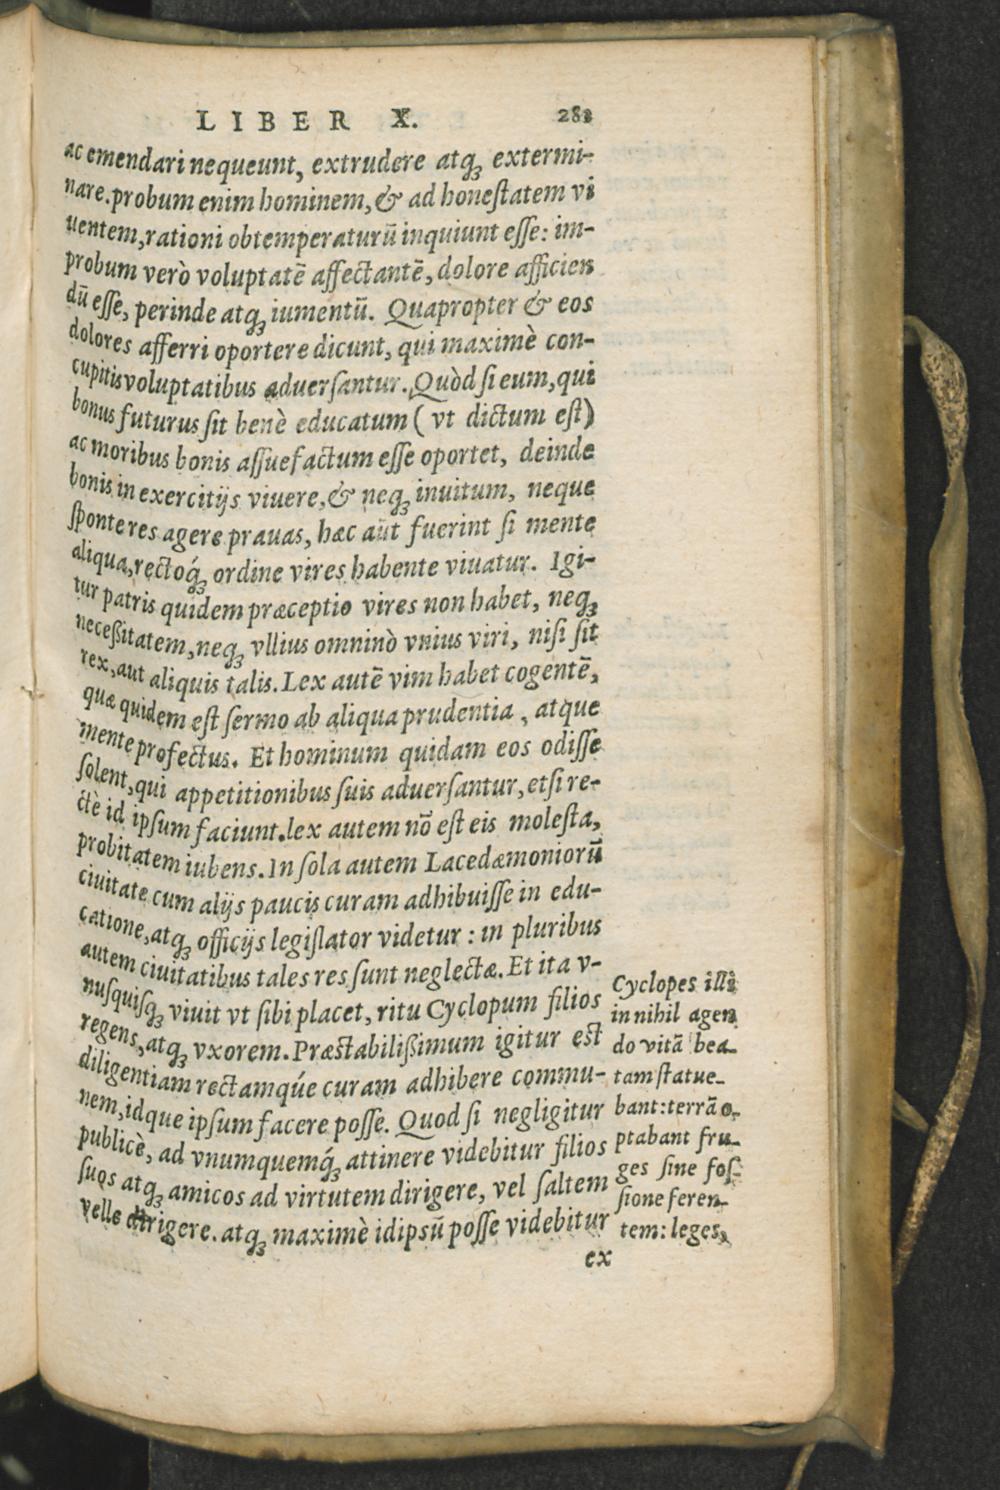 LIBER X. 282
ac emendari nequeunt, extrudere atq́ꝫ extermi-
nare. probum enim hominem, & ad honeſtatem vi
uentem, rationi obtemperaturū inquiunt eſſe: im-
probum verò voluptatē affectantē, dolore afficien
dū eſſe, perinde atqꝫ iumentū. Quapropter & eos
dolores afferri oportere dicunt, qui maximè con-
cupitis voluptatibus aduerſantur. Quòd ſi eum, qui
bonus futurus ſit benè educatum ( vt dictum eſt)
ac moribus bonis aſſuefactum eſſe oportet, deinde
bonis in exercitijs viuere, & neqꝫ inuitum, neque
ſponte res agere prauas, hæc aūt fuerint ſi mente
aliqua, rectoq́ꝫ ordine vires habente viuatur. Igi-
tur patris quidem præceptio vires non habet, neqꝫ
neceßitatem, neqꝫ vllius omninò vnius viri, niſi ſit
rex, aut aliquis talis. Lex autē vim habet cogentē,
quæ quidem eſt ſermo ab aliqua prudentia, atque
mente profectus. Et hominum quidam eos odiſſe
ſolent, qui appetitionibus ſuis aduerſantur, etſi re-
ctè id ipſum faciunt. lex autem nō eſt eis moleſta,
probitatem iubens. In ſola autem Lacedæmoniorū
ciuitate cum alijs paucis curam adhibuiſſe in edu-
catione, atqꝫ officijs legiſlator videtur: in pluribus
autem ciuitatibus tales res ſunt neglectæ. Et ita v-
nuſquiſqꝫ viuit vt ſibi placet, ritu Cyclopum filios
regens, atqꝫ vxorem. Præſtabilißimum igitur eſt
diligentiam rectamqúe curam adhibere commu-
nem, idque ipſum facere poſſe. Quod ſi negligitur
publicè, ad vnumquemq́ꝫ attinere videbitur filios
ſuos atqꝫ amicos ad virtutem dirigere, vel ſaltem
velle dirigere. atqꝫ maximè id ipsū poſſe videbitur
ex
Cyclopes illi
in nihil agen
do vitā bea-
tam ſtatue-
bant: terrā o-
ptabant fru-
ges ſine foſ-
ſione feren-
tem: leges,